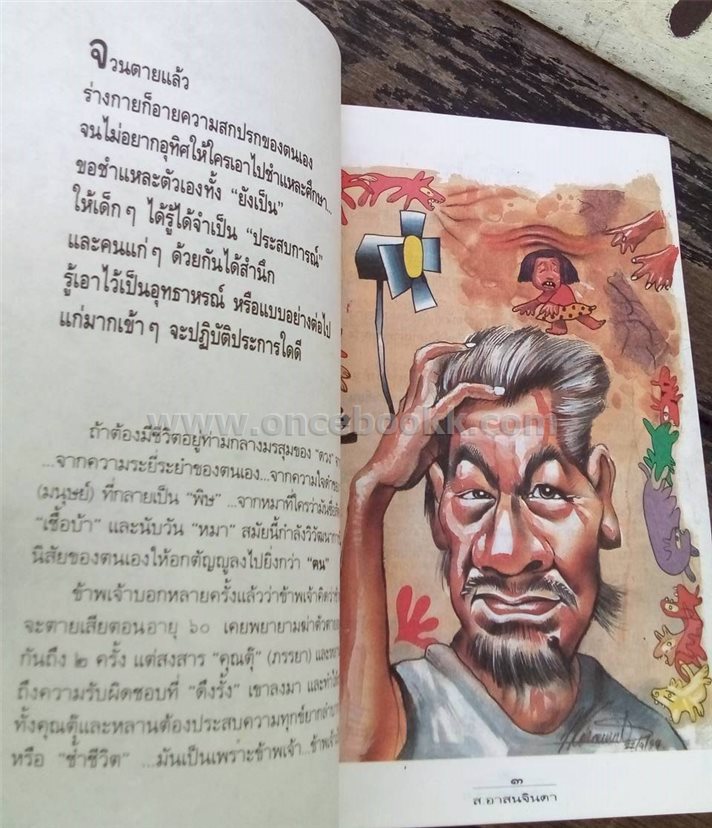 จวนตายแล้ว
ร่างกายก็อายความสกปรกของตนเอง
จนไม่อยากอุทิศให้ใครเอาไปชำแหละศึกษา...
ขอชำแหละตัวเองทั้ง “ยังเป็น”
ให้เด็กๆ ได้รู้ได้จำเป็น “ประสบการณ์”
และคนแก่ๆ ด้วยกันได้สำนึก
รู้เอาไว้เป็นอุทธาหรณ์ หรือแบบอย่างต่อไป
แก่มากเข้าๆ จะปฏิบัติประการใดดี
www.oncebookk.com
ถ้าต้องมีชีวิตอยู่ท่ามกลางมรสุมของ “ดวง”
...จากความระยี่ระยำของตนเอง...จากความใจดำของ
(มนุษย์) ที่กลายเป็น “พิษ” ...จากหมาที่ใครว่ามัน
“เชื้อบ้า” และนับวัน “หมา” สมัยนี้กำลังวิวัฒนาการ
นิสัยของตนเองให้อกตัญญูลงไปยิ่งกว่า “คน”
ข้าพเจ้าบอกหลายครั้งแล้วว่าข้าพเจ้าคิดว่า
จะตายเสียตอนอายุ ๖๐ เคยพยายามฆ่าตัวตาย
กันถึง ๒ ครั้ง แต่สงสาร “คุณตุ๊” (ภรรยา) และ
ถึงความรับผิดชอบที่ “ดึงรั้ง” เขาลงมา และทำให้
ทั้งคุณตุ๊และหลานต้องประสบความทุกข์ยากลำบาก
หรือ “ช้ำชีวิต” ...มันเป็นเพราะข้าพเจ้า...ข้าพเจ้า
๓
ส.อาสนจินดา